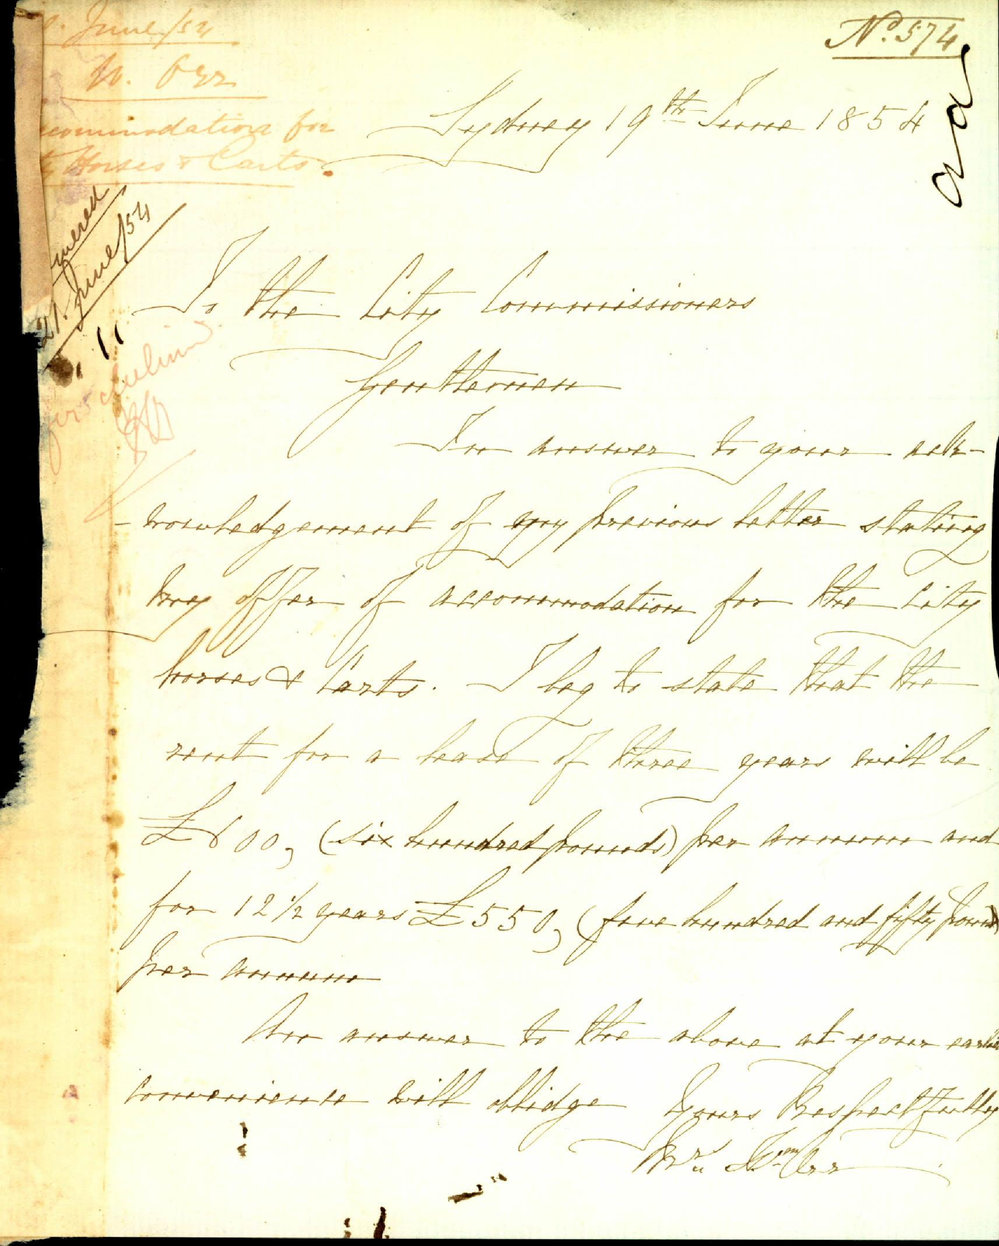 June/54
No. 574
W. Orr
Sydney 19th June 1854
accommodation for
Horses & Carts.
21. June/54
11
To the City Commissioners
Gentlemen
In answer to your ack-
-nowledgement of my previous letter stating
my offer of accommodation for the City
horses & Carts. I beg to state that the
rent for a lease of three years will be
£600, (six hundred pounds) per annum and
for 12½ years £550, (five hundred and fifty pounds)
per annum
An answer to the above at your earliest
convenience will oblidge Yours Respectfully
Orr